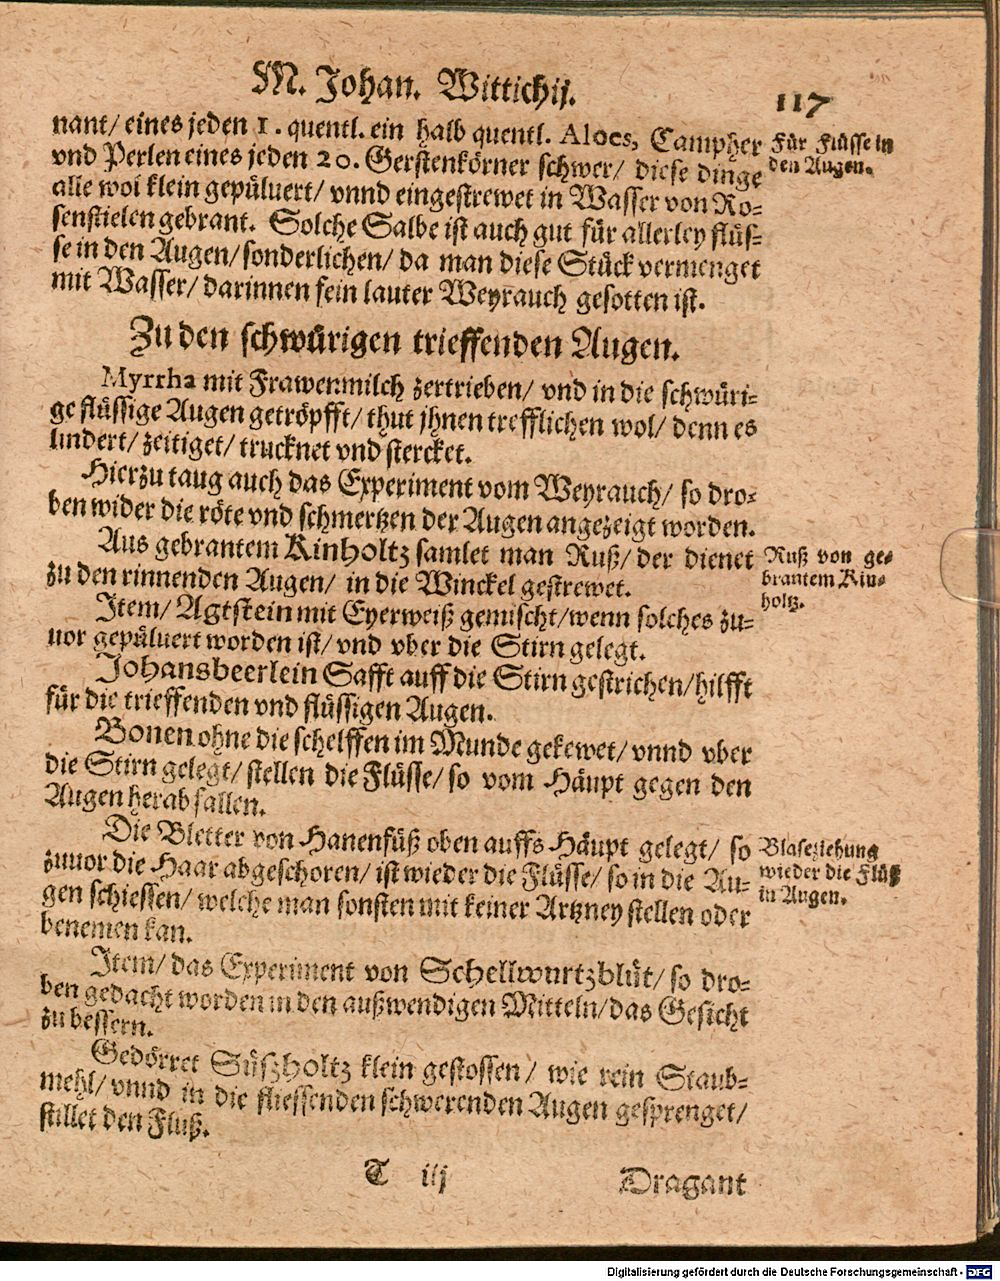 M. Johan. Wittichij.
117
nant/ eines jeden 1. quentl. ein halb quentl. Aloes, Campher
vnd Perlen eines jeden 20. Gerstenkörner schwer/ diese dinge
alle wol klein gepüluert/ vnnd eingestrewet in Wasser von Ro-
senstielen gebrant. Solche Salbe ist auch gut für allerley flüs-
se in den Augen/ sonderlichen/ da man diese Stück vermenget
mit Wasser/ darinnen fein lauter Weyrauch gesotten ist.
Für Flüsse in
den Augen.
Zu den schwürigen trieffenden Augen.
Myrrha mit Frawenmilch zertrieben/ vnd in die schwüri-
ge flüssige Augen getröpfft/ thut jhnen trefflichen wol/ denn es
lindert/ zeitiget/ trucknet vnd stercket.
Hierzu taug auch das Experiment vom Weyrauch/ so dro-
ben wider die röte vnd schmertzen der Augen angezeigt worden.
Aus gebrantem Kinholtz samlet man Ruß/ der dienet
zu den rinnenden Augen/ in die Winckel gestrewet.
Ruß von ge-
brantem Kin-
holtz.
Item/ Agtstein mit Eyerweiß gemischt/ wenn solches zu-
uor gepüluert worden ist/ vnd vber die Stirn gelegt.
Johansbeerlein Safft auff die Stirn gestrichen/ hilfft
für die trieffenden vnd flüssigen Augen.
Bonen ohne die schelffen im Munde gekewet/ vnnd vber
die Stirn gelegt/ stellen die Flüsse/ so vom Häupt gegen den
Augen herab fallen.
Die Bletter von Hanenfüß oben auffs Häupt gelegt/ so
zuuor die Haar abgeschoren/ ist wieder die Flüsse/ so in die Au-
gen schiessen/ welche man sonsten mit keiner Artzney stellen oder
benemen kan.
Blaseziehung
wieder die Flüß
in Augen.
Item/ das Experiment von Schellwurtzblüt/ so dro-
ben gedacht worden in den außwendigen Mitteln/ das Gesicht
zu bessern.
Gedörret Süszholtz klein gestossen/ wie rein Staub-
mehl/ vnnd in die fliessenden schwerenden Augen gesprenget/
stillet den Fluß.
T iij
Dragant
Digitalisierung gefördert durch die Deutsche Forschungsgemeinschaft - DFG